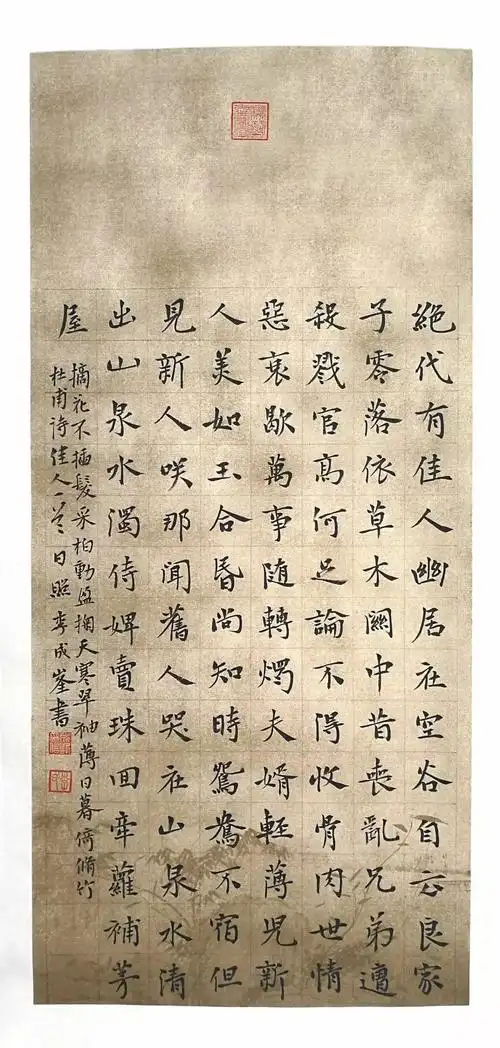 絕代有佳人幽居在空谷自云良家
子零落依草木關中昔喪亂兄弟遭
殺戮官髙何足論不得收骨肉世情
惡衰歇萬事随轉燭夫婿輕薄兒新
人美如玉合昏尚知時鴛鴦不宿但
見新人咲那聞舊人哭在山泉水清
出山泉水濁侍婢賣珠回牽蘿補茅
屋
摘花不插髮采柏動盈掬天寒翠袖薄日暮倚脩竹
杜甫诗佳人一首日照李成峯書